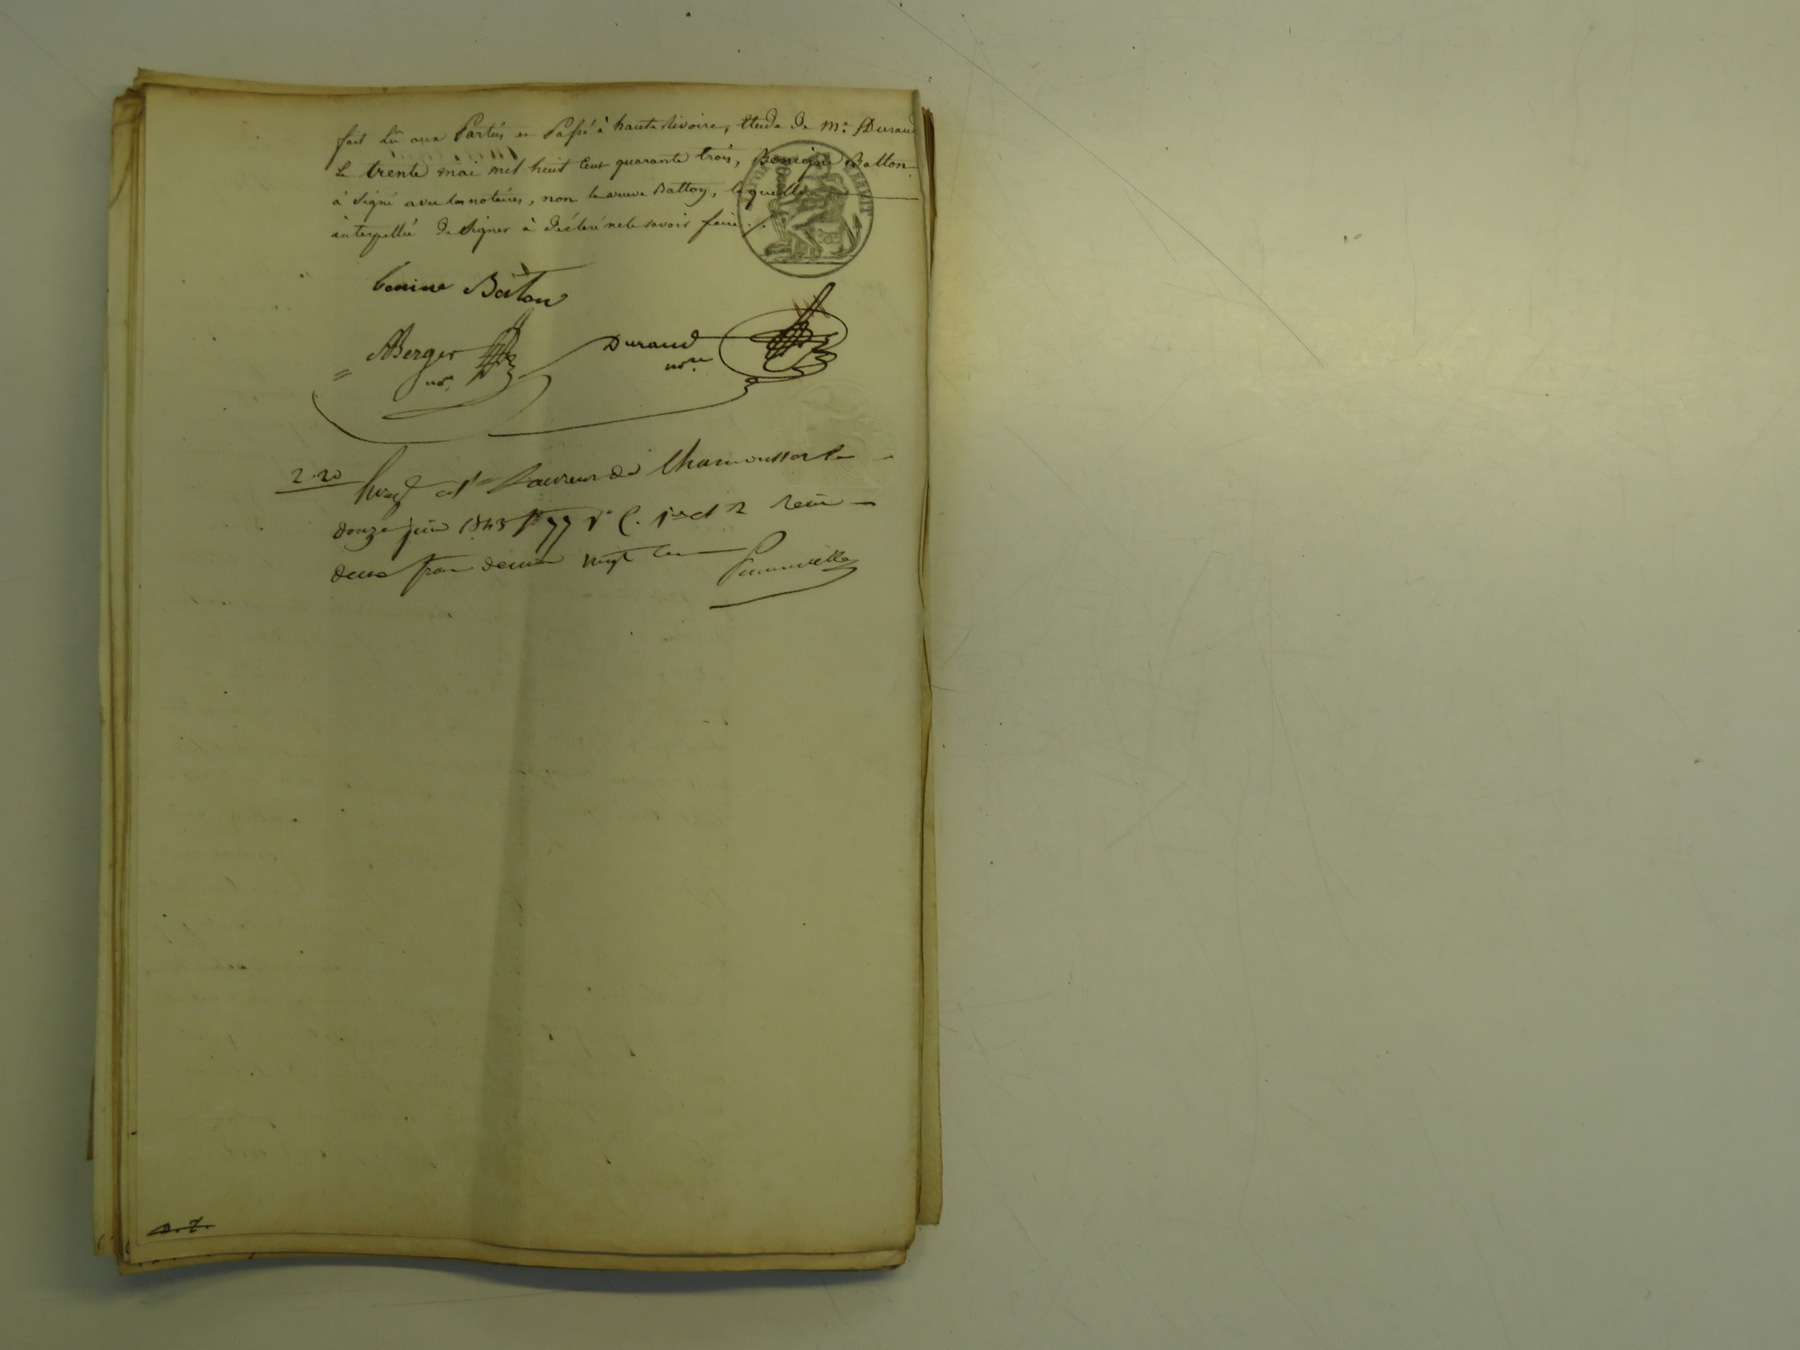 fait Lû aux Parties et Passé à hauterivoire, Etude de Me. Durand
Le trente mai mil huit cent quarante trois, Batton
à signé avec les notaires, non la veuve Batton, laquelle
interpellée de signer à déclaré ne le savoir faire.
Batton
ABerger
nore.
Durand
nore.
2-20
St Laurent de Chamousset le
douze juin 1843 fo 77 Vo C. 1re et 2 reçu
deux francs vingt